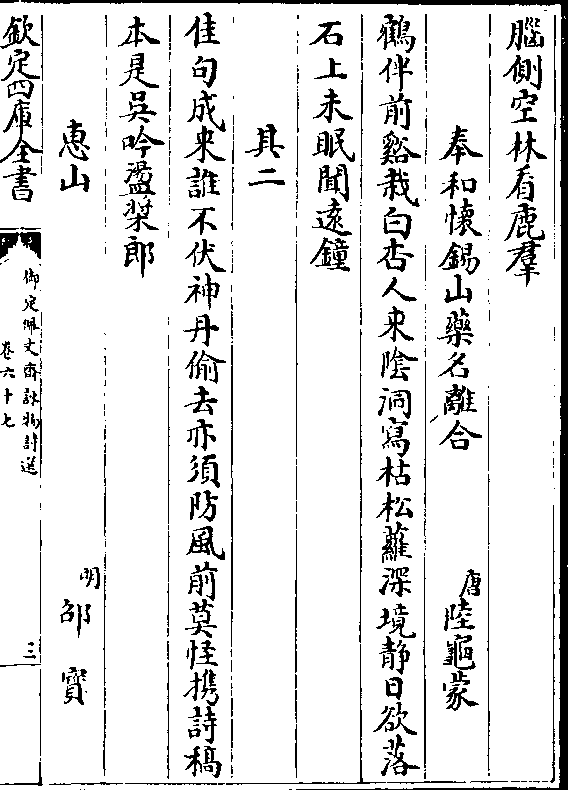 腦側空林看鹿羣
奉和懷錫山藥名離合
唐陸龜蒙
鶴伴前谿栽白杏人來陰洞寫枯松蘿深境静日欲落
石上未眠聞遠鐘
其二
佳句成來誰不伏神丹偷去亦須防風前莫怪携詩稿
本是吳吟盪槳郎
惠山
明邵寳
欽定四庫全書
御定佩文齋詠物詩選
卷六十七
三